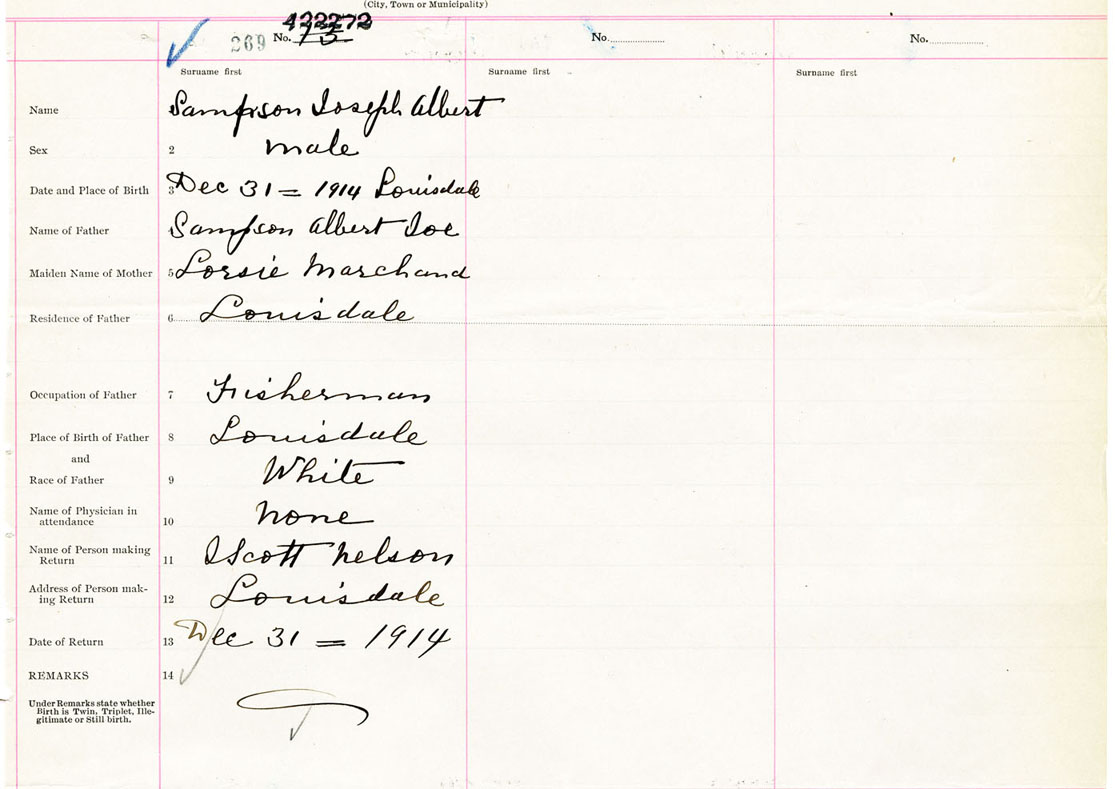 (City, Town or Municipality)
269 No. 422272 No. No.
Surname first Surname first Surname first
Name Sampson Joseph Albert
Sex 2 male
Date and Place of Birth 3 Dec 31 = 1914 Louisdale
Name of Father Sampson Albert Joe
Maiden Name of Mother 5 Lorsie Marchand
Residence of Father 6 Louisdale
Occupation of Father 7 Fisherman
Place of Birth of Father 8 Louisdale
and
Race of Father 9 White
Name of Physician in
attendance 10 none
Name of Person making
Return 11 Scott Nelson
Address of Person mak-
ing Return 12 Louisdale
Date of Return 13 Dec 31 = 1914
REMARKS 14
Under Remarks state whether
Birth is Twin, Triplet, Ille-
gitimate or Still birth.